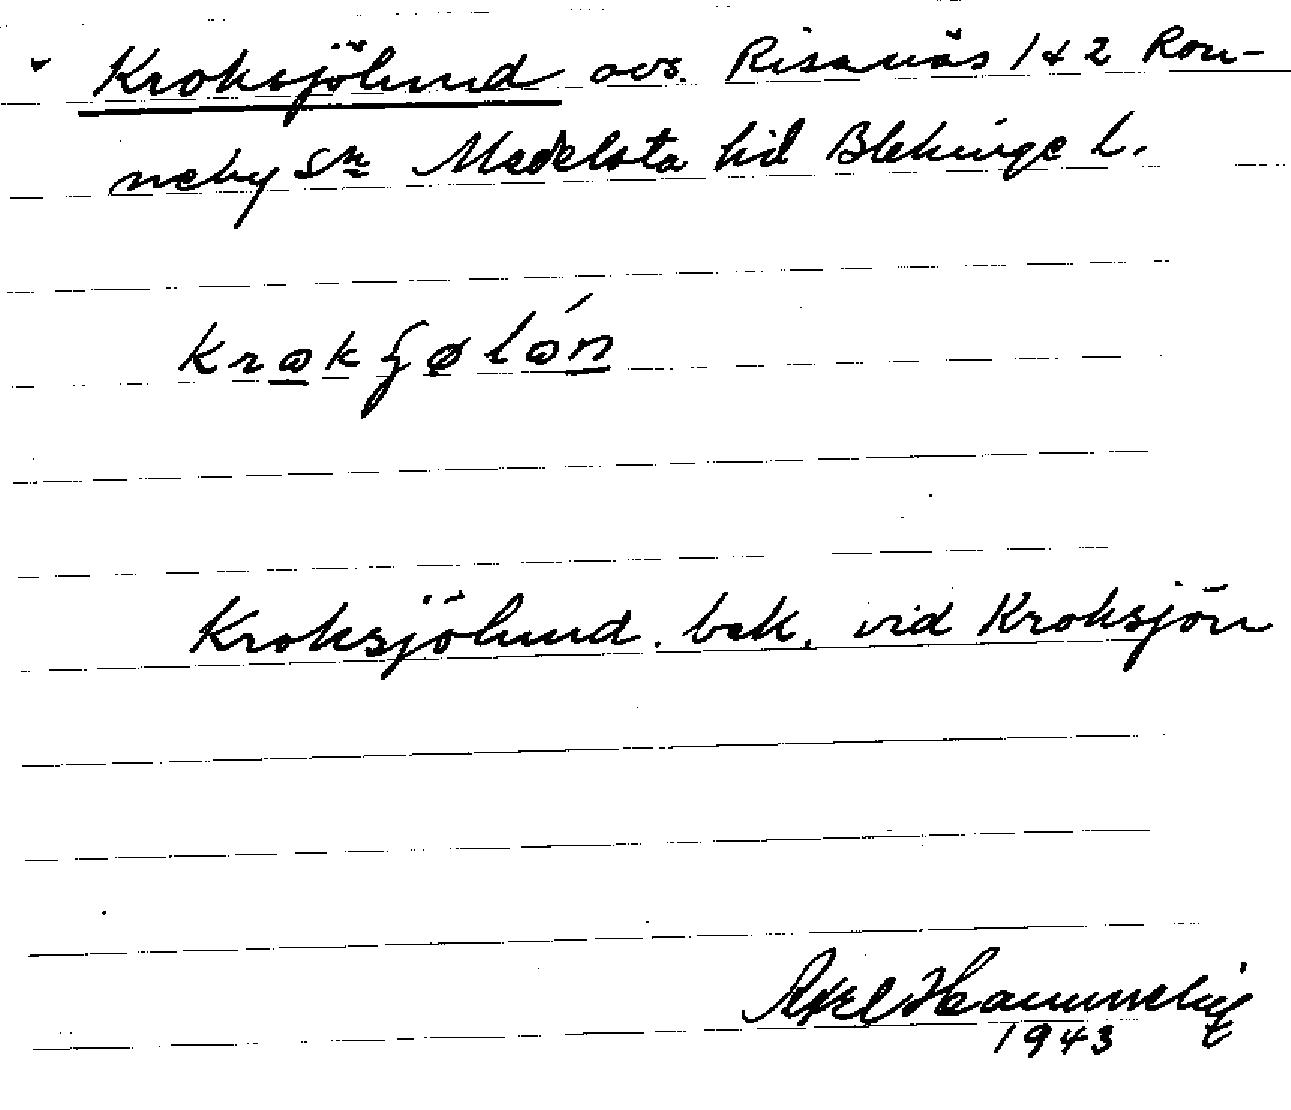 Kroksjölund avs. Risanäs 1 & 2 Ron-
neby sn Medelsta hd Blekinge l.
Kroksjölund. bek. vid Kroksjön
Axel
1943